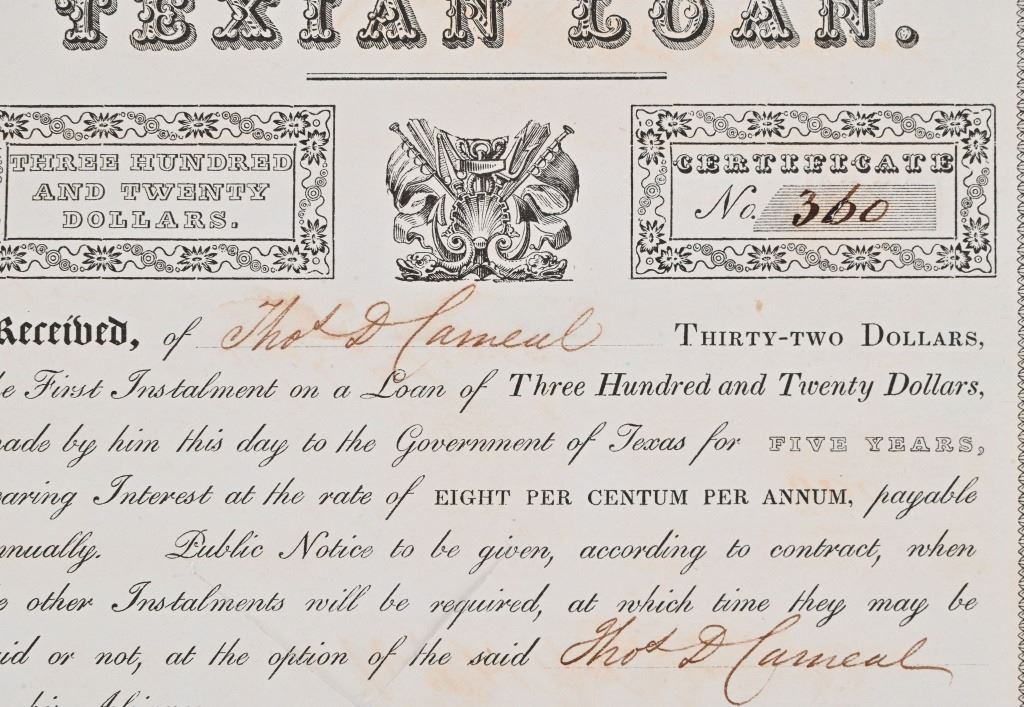 TEXIAN LOAN.
THREE HUNDRED
AND TWENTY
DOLLARS.
CERTIFICATE
No. 360
Received, of Thos D Carneal THIRTY-TWO DOLLARS,
e First Instalment on a Loan of Three Hundred and Twenty Dollars,
ade by him this day to the Government of Texas for FIVE YEARS,
aring Interest at the rate of EIGHT PER CENTUM PER ANNUM, payable
nnually. Public Notice to be given, according to contract, when
e other Instalments will be required, at which time they may be
id or not, at the option of the said Thos D Carneal